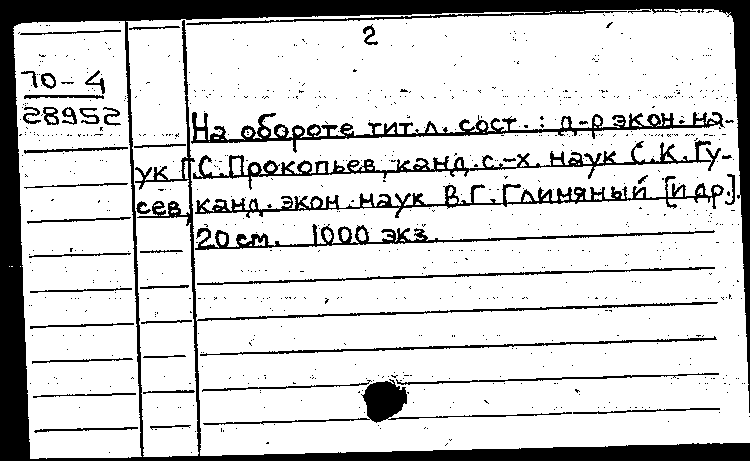 2
70-4
28952
На обороте тит. л. сост. : д-р экон. на-
ук Г.С. Прокопьев, канд. с.-х. наук С.К. Гу-
сев, канд. экон. наук В.Г. Глиняный [и др.].
20 см. 1000 экз.